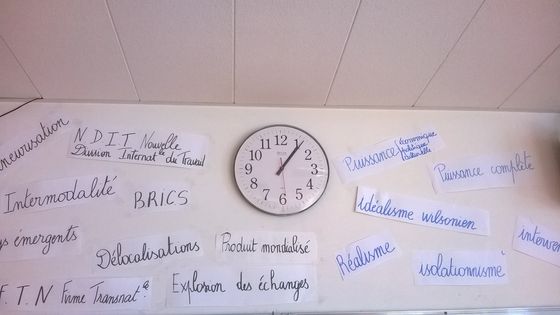 neurisation
N D I T Nouvelle
Division Internatle du Travail
Intermodalité
BRICS
ys émergents
Délocalisations
Produit mondialisé
F. T. N Firme Transnatle
Explosion des échanges
12
1
2
3
4
5
6
7
8
9
10
11
Puissance économique
politique
culturelle
Puissance complète
idéalisme wilsonien
Réalisme
isolationnisme
interven